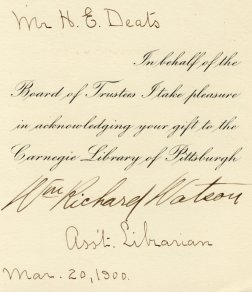 Mr H. E. Deats
In behalf of the
Board of Trustees I take pleasure
in acknowledging your gift to the
Carnegie Library of Pittsburgh
Wm Richard Watson
Ass't. Librarian
Mar. 20, 1900.